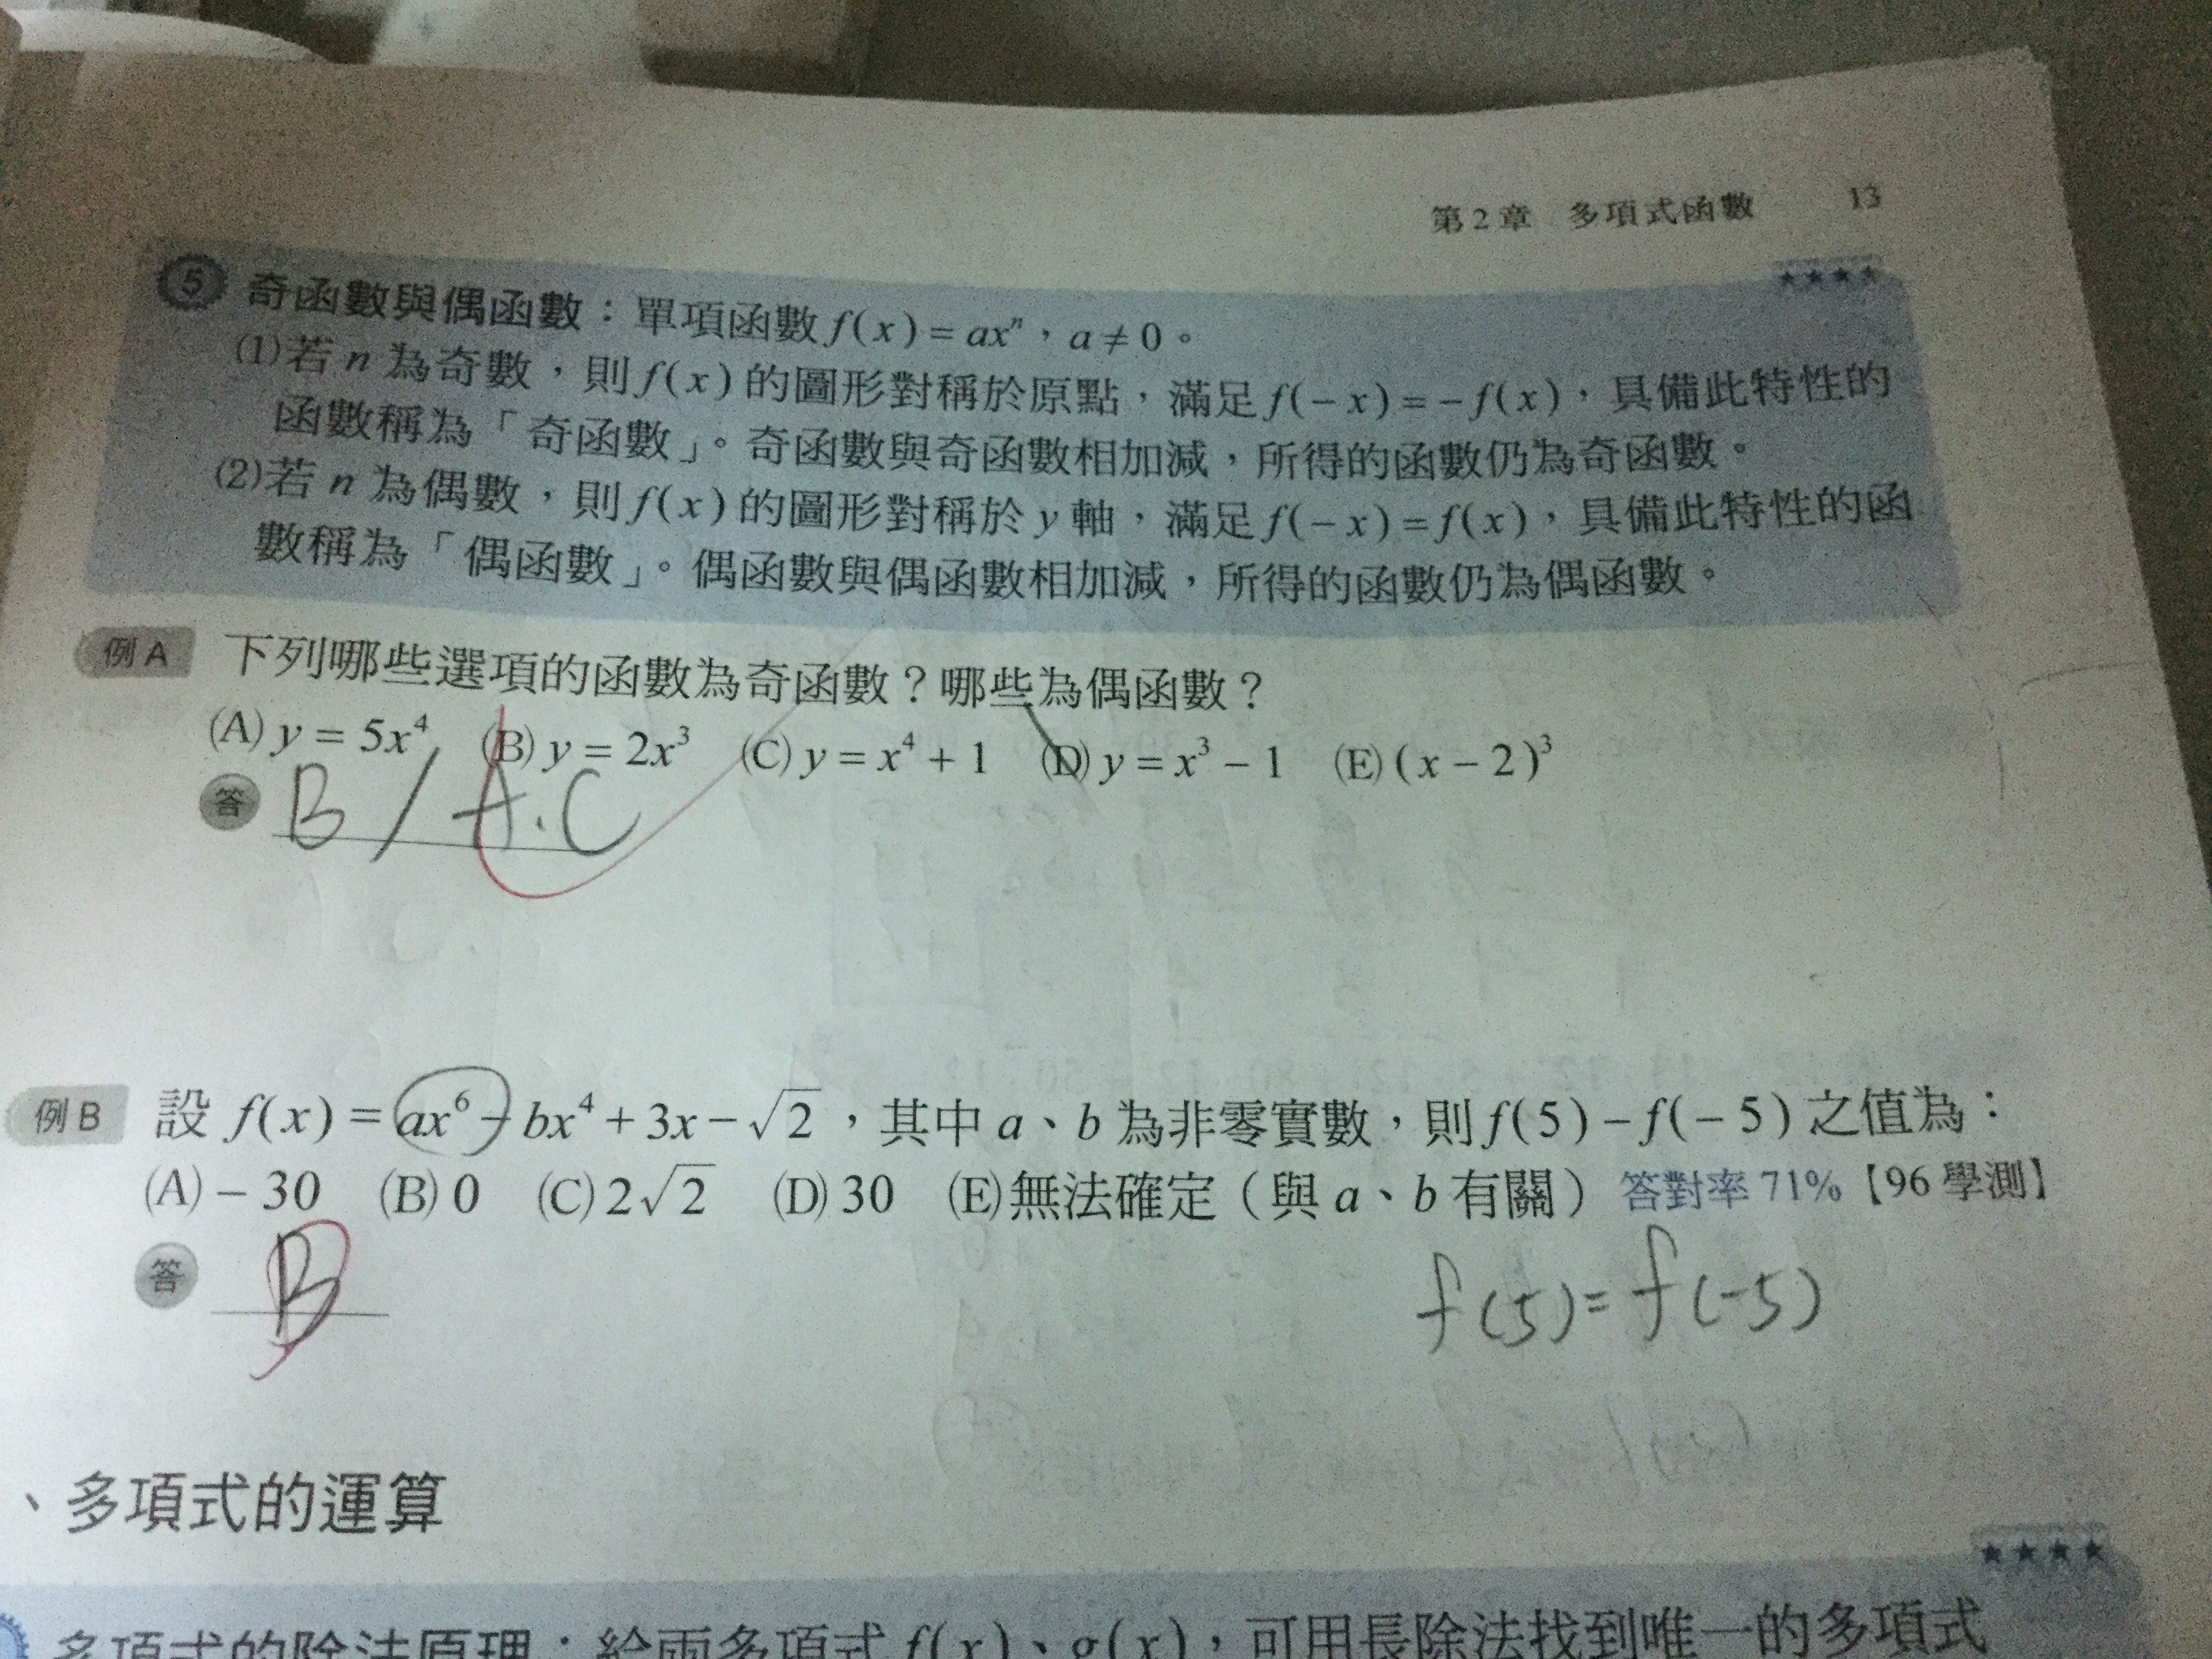 第2章 多項式函數 13
★★★★
5 奇函數與偶函數：單項函數 f(x)=axⁿ，a≠0。
(1)若 n 為奇數，則 f(x) 的圖形對稱於原點，滿足 f(-x)=-f(x)，具備此特性的
函數稱為「奇函數」。奇函數與奇函數相加減，所得的函數仍為奇函數。
(2)若 n 為偶數，則 f(x) 的圖形對稱於 y 軸，滿足 f(-x)=f(x)，具備此特性的函
數稱為「偶函數」。偶函數與偶函數相加減，所得的函數仍為偶函數。
例A 下列哪些選項的函數為奇函數？哪些為偶函數？
(A) y = 5x⁴ (B) y = 2x³ (C) y = x⁴ + 1 (D) y = x³ - 1 (E) (x - 2)³
答 B / A.C
例B 設 f(x) = ax⁶ - bx⁴ + 3x - √2，其中 a、b 為非零實數，則 f(5) - f(-5) 之值為：
(A) - 30 (B) 0 (C) 2√2 (D) 30 (E) 無法確定（與 a、b 有關） 答對率 71%【96 學測】
答 B
f(5)=f(-5)
、多項式的運算
★★★★
多項式的除法原理：給兩多項式 f(x)、g(x)，可用長除法找到唯一的多項式